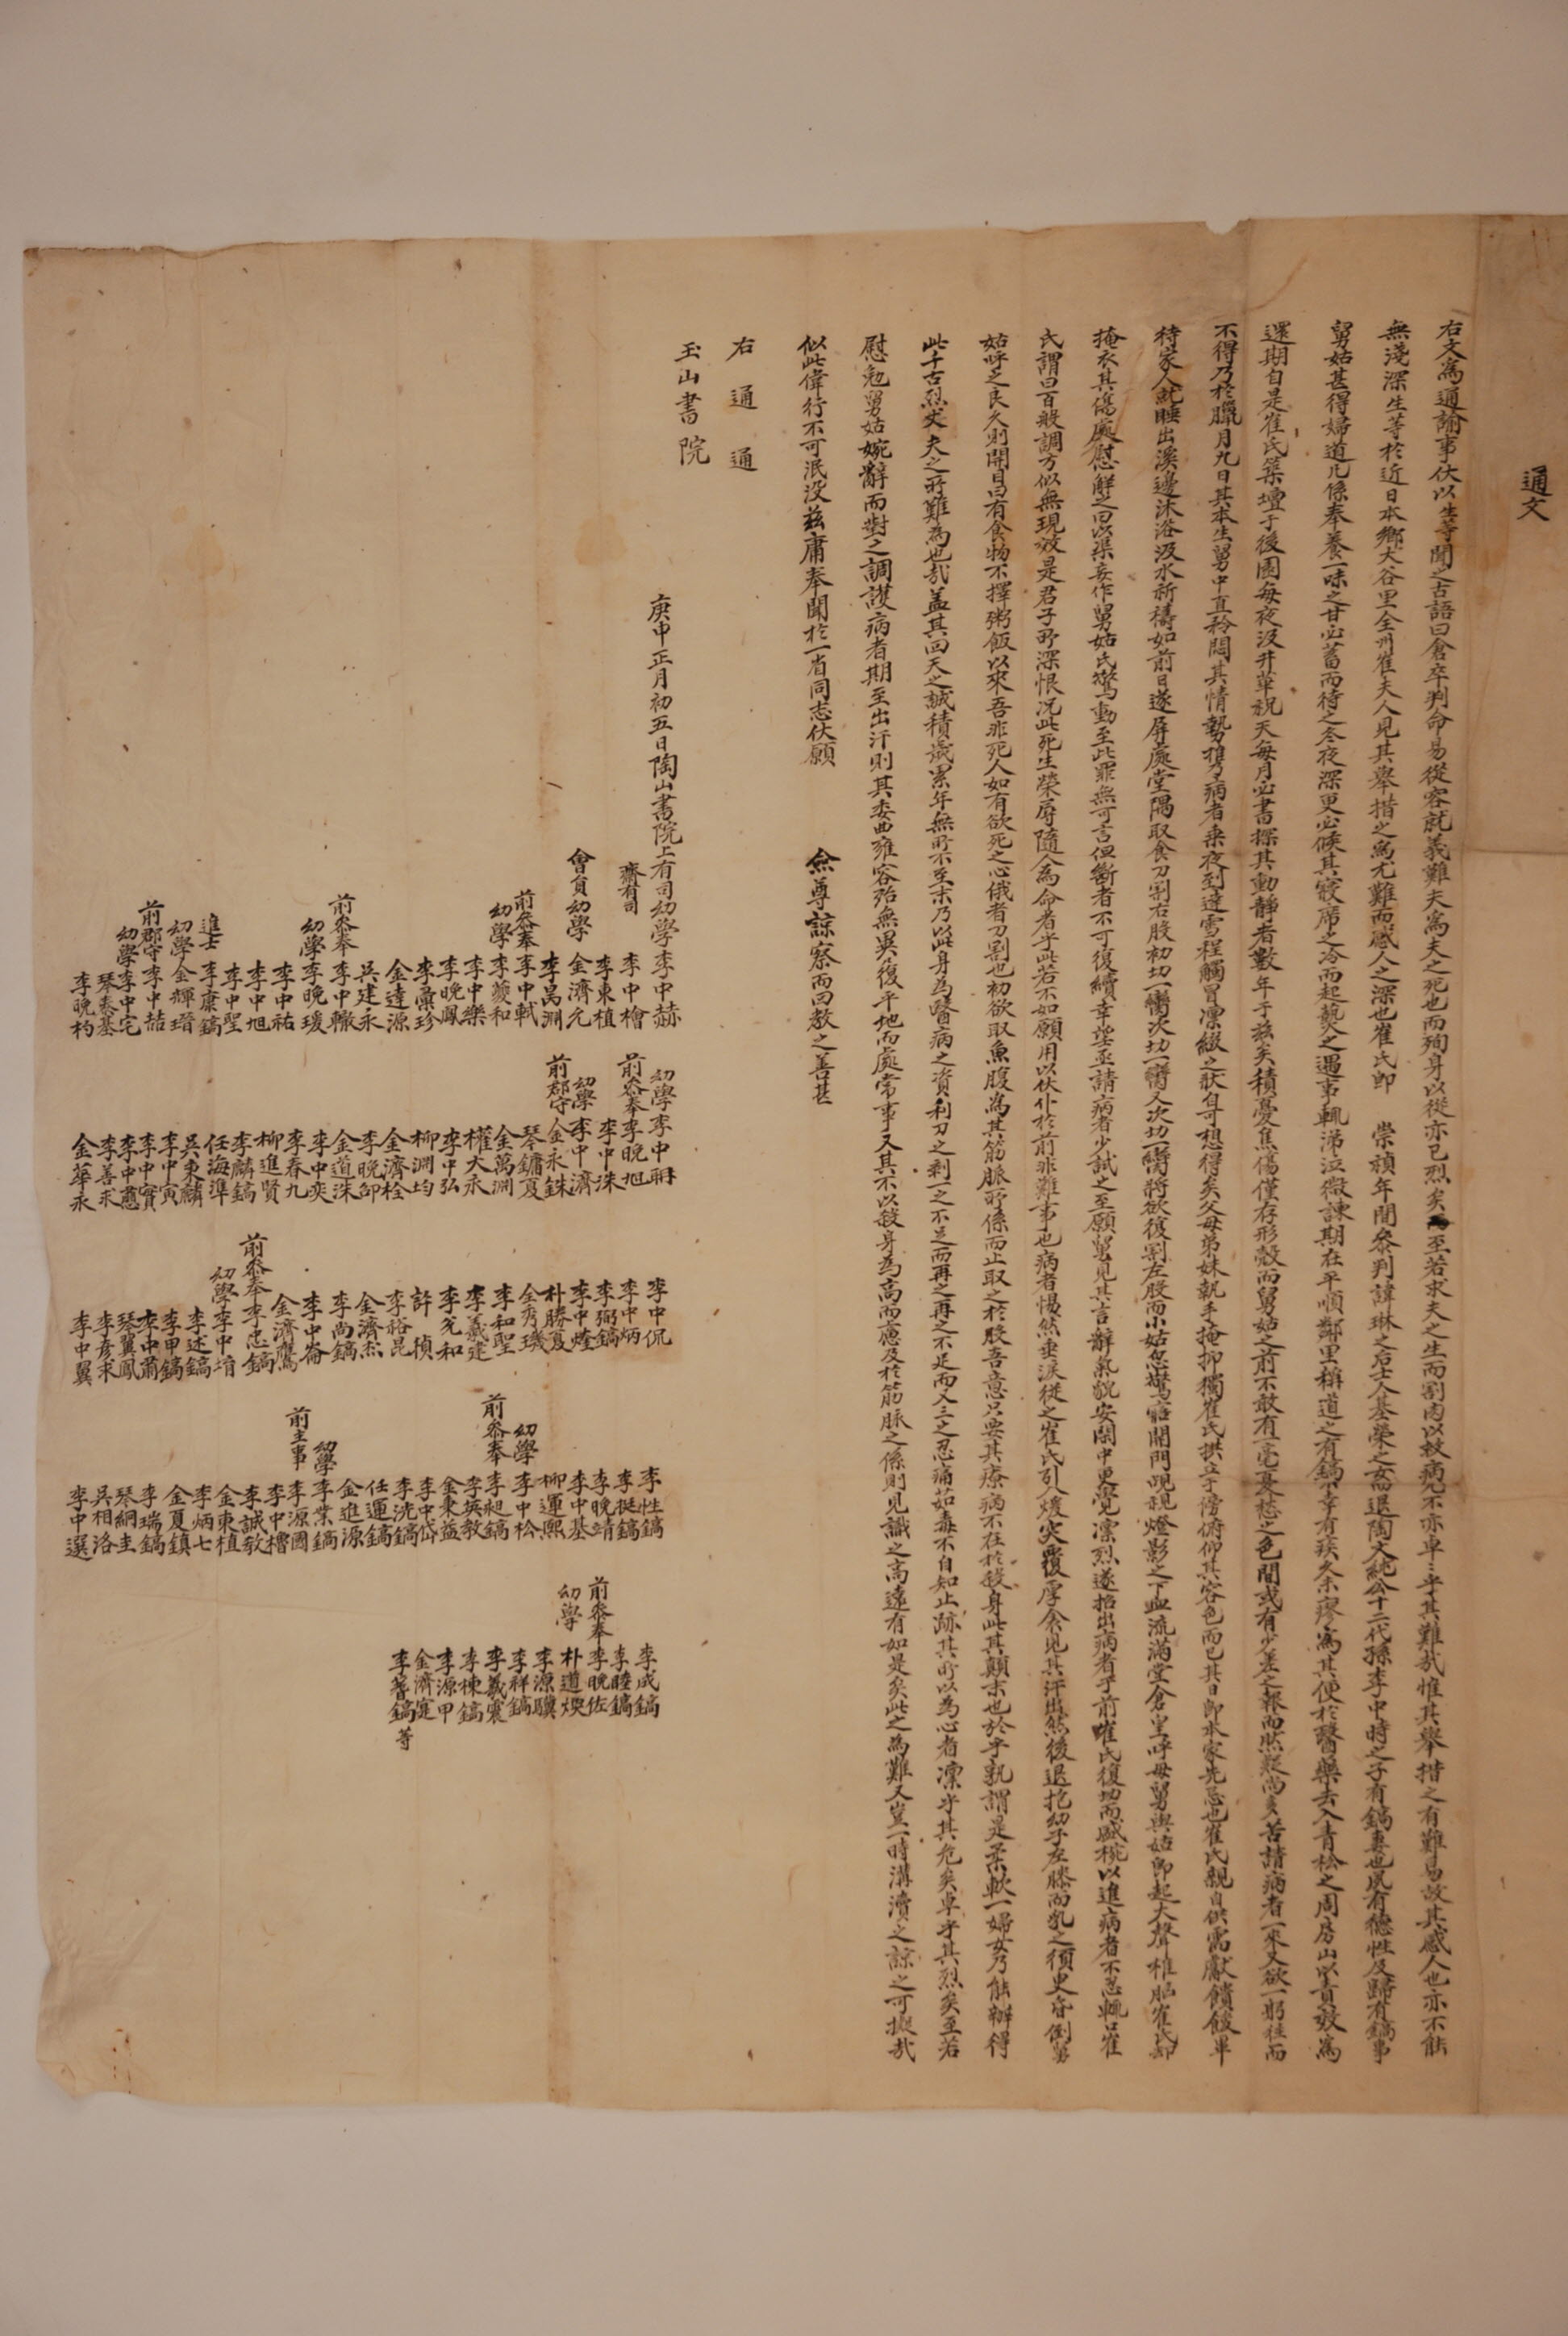 通文
右文爲通諭事伏以生等聞之古語曰倉卒判命易從容就義難夫爲夫之死也而殉身以從亦已烈矣至若求夫之生而割肉以救病尤不亦卓卓乎其難哉惟其擧措之有難易故其感人也亦不能
無淺深生等於近日本鄕大谷里全州崔夫人見其擧措之爲尤難而感人之深也崔氏卽 崇禎年間參判諱琳之后士人基榮之女而退陶文純公十二代孫李中時之子有鎬妻也夙有德性及歸有鎬事
舅姑甚得婦道凡係奉養一味之甘必蓄而待之冬夜深更必候其寢席之冷而起爇之遇事輒涕泣微諫期在平順鄰里稱道之有鎬不幸有疾久未瘳爲其便於醫藥去入靑松之周房山以責效爲
還期自是崔氏築壇于後園每夜汲井華祝天每月必書探其動靜者數年于玆矣積憂焦傷僅存形殼而舅姑之前不敢有一毫憂愁之色間或有少差之報而然疑尚多苦請病者一來又欲一躬往而
不得乃於臘月九日其本生舅中直矜悶其情勢携病者乘夜到達雪程觸冒凜綴之狀自可想得矣父母弟妹執手掩抑獨崔氏拱立于傍俯仰其容色而已其日卽本家先忌也崔氏親自供需獻饋餕畢
待家人就睡出溪邊沐浴汲水祈禱如前日遂屏處堂隅取食刀割右股初切一臠次切一臠又次切一臠將欲復割左股而小姑忽驚寤開門覘視燈影之下血流滿堂倉皇呼母舅與姑卽起大聲椎胸崔氏卻
掩衣其傷處慰解之曰以渠妄作舅姑氏驚動至此罪無可言但斷者不可復續幸望亟請病者少試之至願舅見其言辭氣貌安閒中更覺凜烈遂招出病者于前崔氏復切而盛椀以進病者不忍輒口崔
氏謂曰百般調方似無現效是君子所深恨況此死生榮辱隨人爲命者乎此若不如願用以伏仆於前非難事也病者惕然垂淚從之崔氏引入煖突覆厚衾見其汗出然後退抱幼子左膝而乳之須臾昏倒舅
姑呼之良久則開目曰有食物不擇粥飯以來吾非死人如有欲死之心俄者刀割也初欲取魚腹爲其筋脈所係而止取之於股吾意只要其療病不在於殺身此其顚末也於乎孰謂是柔軟一婦女乃能辦得
此千古烈丈夫之所難爲也哉盖其回天之誠積歲累年無所不至末乃以此身爲醫病之資利刀之剝一之不足而再之再之不足而又三之忍痛茹毒不自知止跡其所以爲心者凜乎其危矣卓乎其烈矣至若
慰勉舅姑婉辭而對之調護病者期至出汗則其委曲雍容殆無異復平地而處常事又其不以殺身爲高而慮及於筋脈之係則見識之高遠有如是矣此之爲難又豈一時溝瀆之諒之可擬哉
似此偉行不可泯沒玆庸奉聞於一省同志伏願 僉尊諒察而回敎之善甚
右通通
玉山書院
庚申正月初五日陶山書院上有司幼學李中赫
齋有司 李中檜
李東植
會員幼學金濟允
李昺淵
前參奉李中軾
幼學李夔和
李中樂
李晩鳳
李彙珍
金達源
吳建永
前參奉李中轍
幼學李晩瑗
李中祐
李中旭
李中聖
進士李康鎬
幼學金輝瑨
前郡守李中喆
幼學李中宅
琴泰基
李晩杓
幼學李中聃
前參奉李晩旭
李中洙
幼學李中濟
前郡守金永銖
琴鏞夏
金萬淵
權大永
李中弘
柳淵均
金濟栓
李晩郃
金道洙
李中奕
李春九
柳進賢
李麟鎬
任海準
吳秉麟
李中寅
李中實
李中懿
李善求
金華永
李中侃
李中炳
李弼鎬
李中煃
朴勝夏
金秀璣
李和聖
李羲建
李允和
許楨
李裕昆
金濟烋
李尚鎬
李中崙
金濟鷹
前參奉李忠鎬
幼學李中堉
李述鎬
李甲鎬
李中肅
琴翼鳳
李彦求
李中翼
李性鎬
李挺鎬
李晩靖
李中基
柳運熙
幼學李中松
前參奉李昶鎬
李英敎
金秉益
李中岱
李洸鎬
任運鎬
金進源
幼學李業鎬
前主事李源國
李中檣
李誠敎
金東植
李炳七
金夏鎭
李瑞鎬
琴絅圭
吳相洛
李中選
李成鎬
李睦鎬
前參奉李晩佐
幼學朴道煥
李源驥
李祥鎬
李羲震
李棟鎬
李源甲
金濟寔
李蓍鎬等